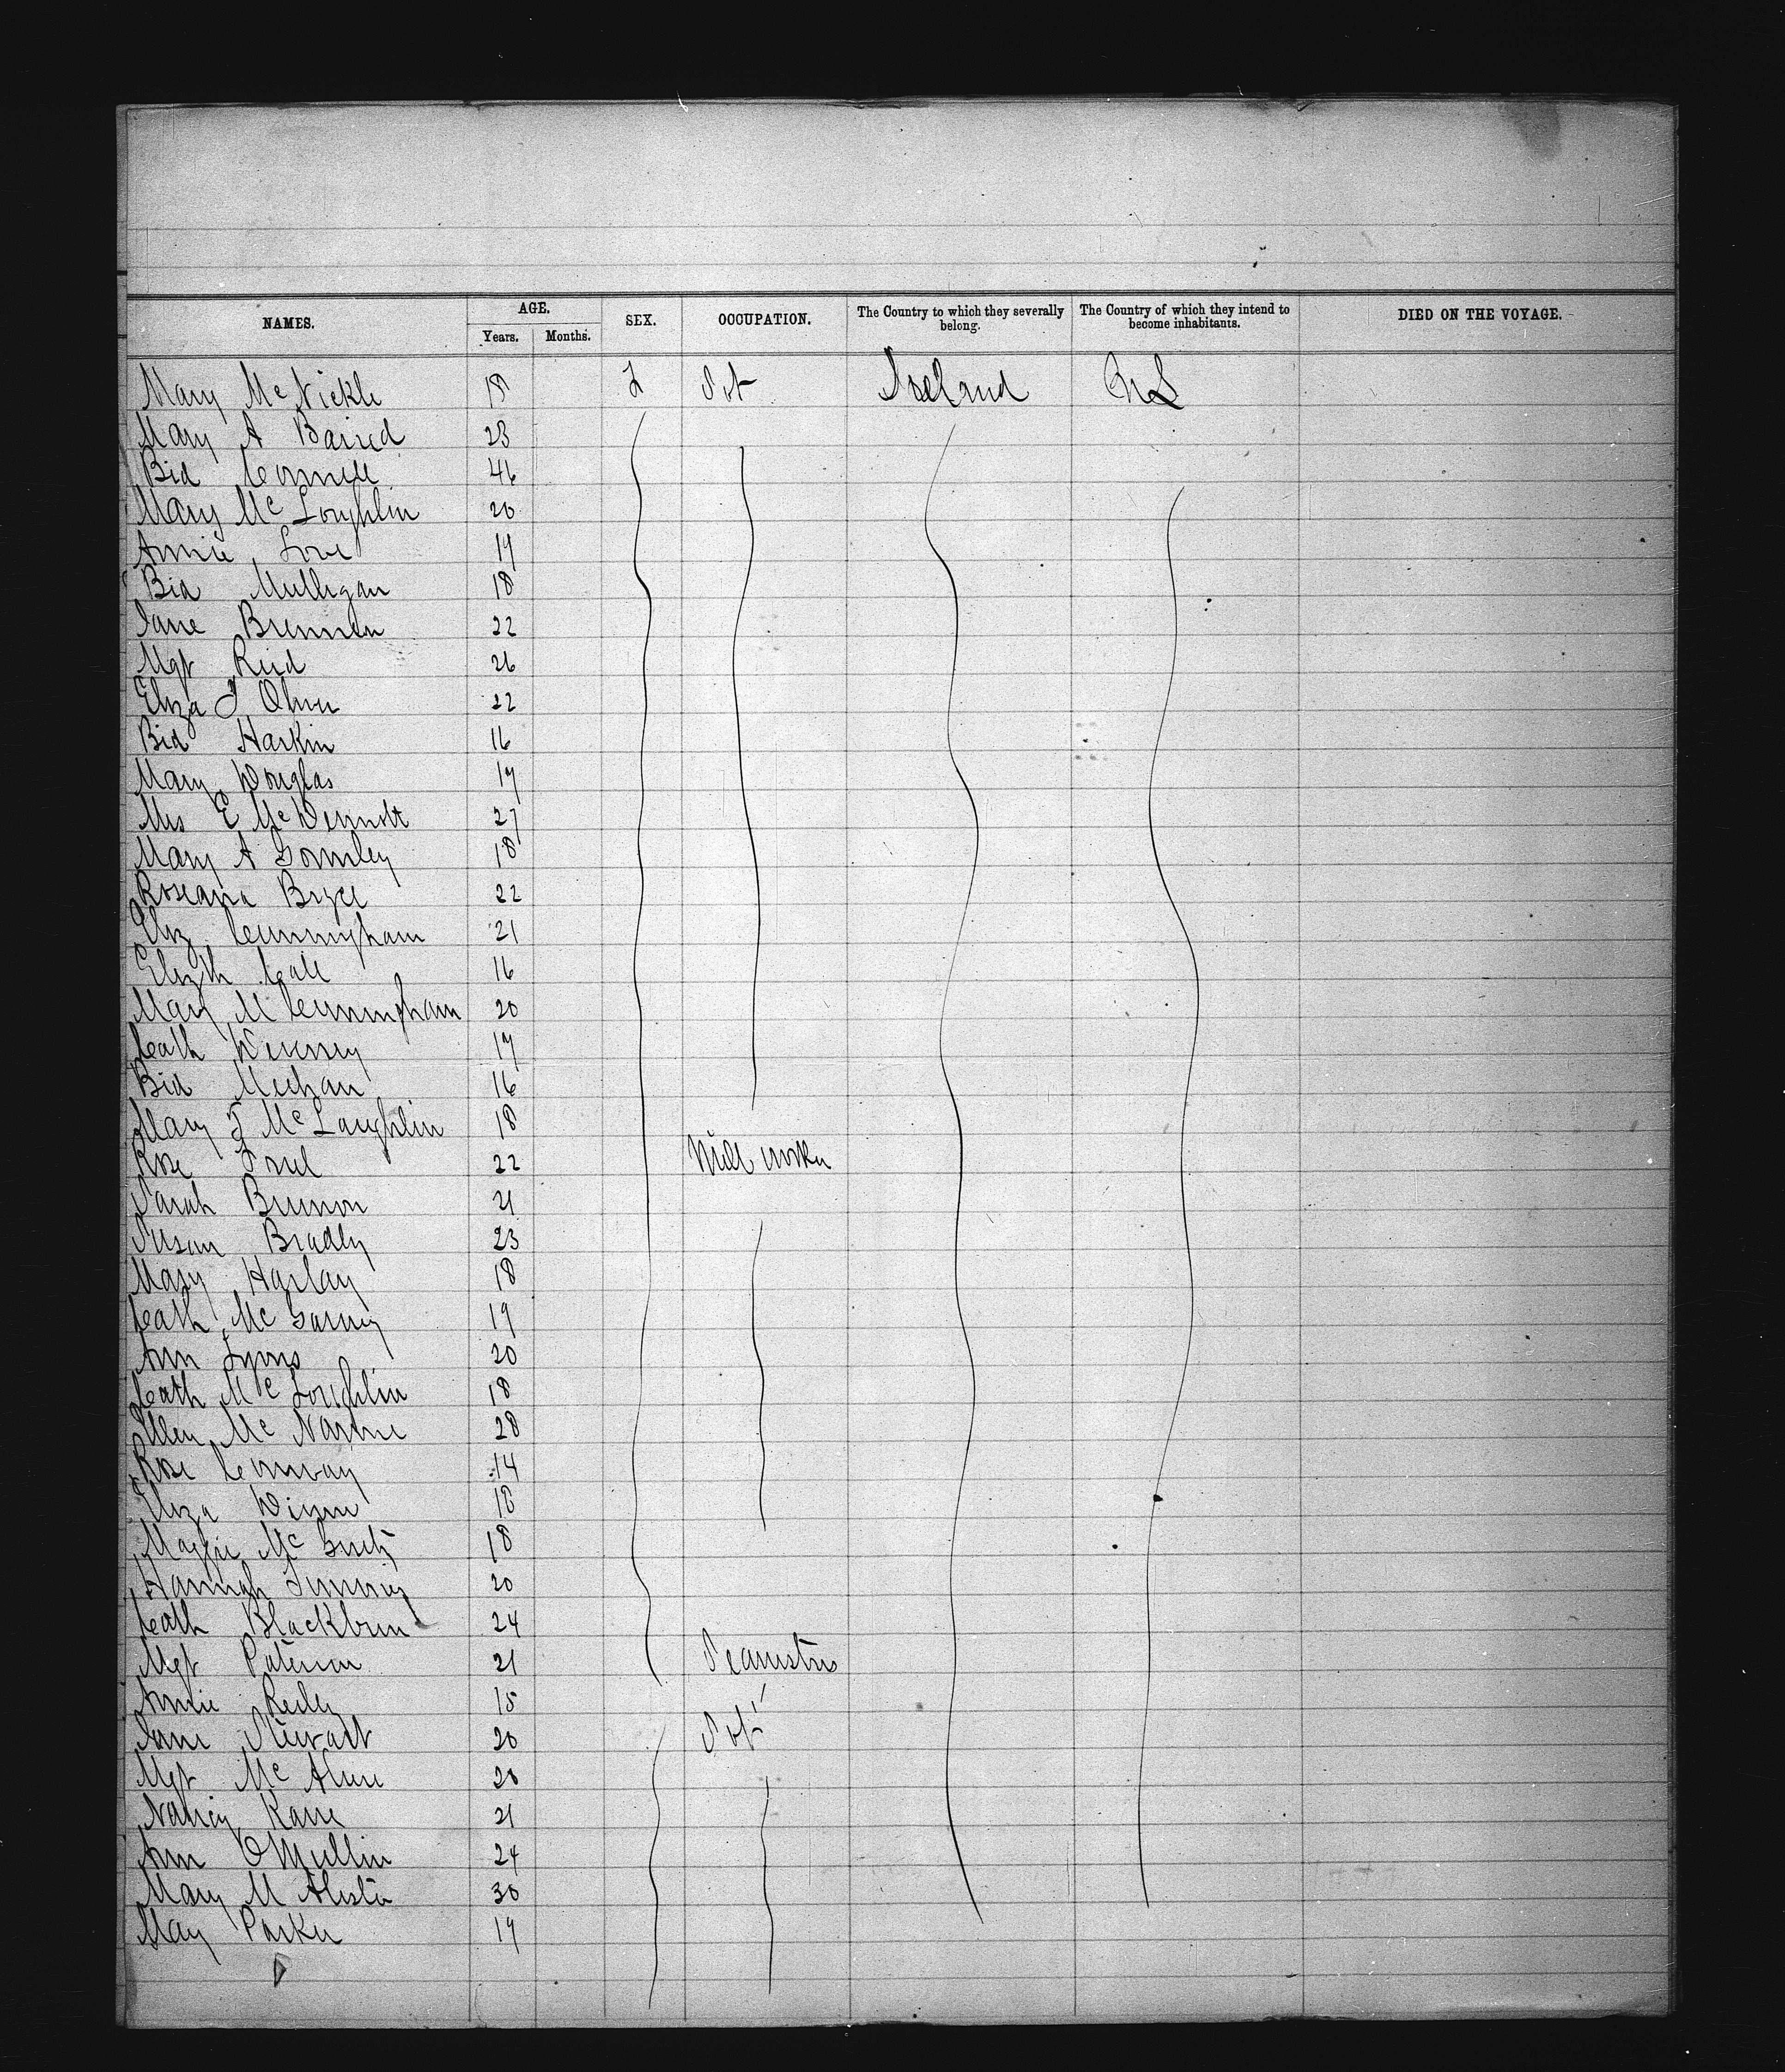 NAMES. AGE. SEX. OCCUPATION. The Country to which they severally belong. The Country of which they intend to become inhabitants. DIED ON THE VOYAGE.
Years. Months.
Mary McNickle 18 F Spt Ireland US
Mary A Baired 23
Bid Connell 46
Mary McLoughlin 20
Annie Love 19
Bid Mulligan 18
Jane Brennen 22
Mgt Reid 26
Eliza J Oliver 22
Bid Harkin 16
Mary Douglas 19
Mrs E McDermott 27
Mary A Gormley 18
Roseana Bryce 22
Eliz Cunningham 21
Elizth Call 16
Mary M Cunningham 20
Cath 19
Bid Meehan 16
Mary J McLaughlin 18
Rose 22 Mill worker
Sarah Brennon 21
Susan Bradley 23
Mary Harlay 18
Cath McGarvey 19
Ann Lyons 20
Cath McLoughlin 18
Ellen Mc 28
Rose Conway 14
Eliza 18
Maggie Mc 18
Hannah 20
Cath Blackburn 24
Mgt Paterson 21 Seamstress
Annie Reily 15
Jane Stewart 20 Spt
Mgt McAlure 20
Nancy Kane 21
Ann OMullin 24
Mary McAlister 30
May Parker 19